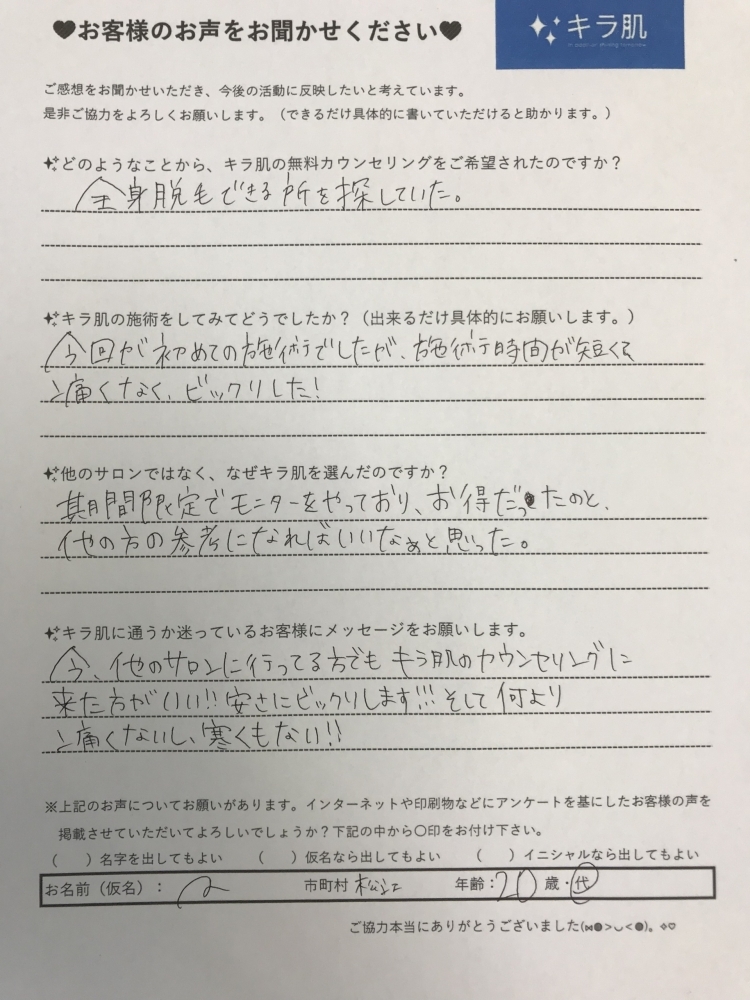 ♥お客様のお声をお聞かせください♥
キラ肌
ご感想をお聞かせいただき、今後の活動に反映したいと考えています。
是非ご協力をよろしくお願いします。（できるだけ具体的に書いていただけると助かります。）
どのようなことから、キラ肌の無料カウンセリングをご希望されたのですか？
全身脱毛できる所を探していた。
キラ肌の施術をしてみてどうでしたか？（出来るだけ具体的にお願いします。）
今回が初めての施術でしたが、施術時間が短くて
痛くなく、ビックリした!
他のサロンではなく、なぜキラ肌を選んだのですか？
期間限定でモニターをやっており、お得だったのと、
他の方の参考になればいいなぁと思った。
キラ肌に通うか迷っているお客様にメッセージをお願いします。
今、他のサロンに行ってる方でもキラ肌のカウンセリングに
来た方がいい!!安さにビックリします!!!そして何より
痛くないし、寒くもない!!
※上記のお声についてお願いがあります。インターネットや印刷物などにアンケートを基にしたお客様の声を
掲載させていただいてよろしいでしょうか？下記の中から〇印をお付け下さい。
（　）名字を出してもよい　（　）仮名なら出してもよい　（　）イニシャルなら出してもよい
お名前（仮名）：　市町村 松江　年齢：20 歳・代
ご協力本当にありがとうございました